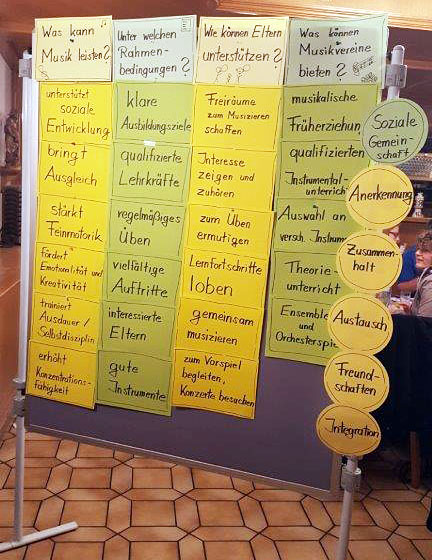 Was kann
Musik leisten?
unterstützt
soziale
Entwicklung
bringt
Ausgleich
stärkt
Feinmotorik
fördert
Emotionalität und
Kreativität
trainiert
Ausdauer /
Selbstdisziplin
erhöht
Konzentrations-
fähigkeit
Unter welchen
Rahmen-
bedingungen?
klare
Ausbildungsziele
qualifizierte
Lehrkräfte
regelmäßiges
Üben
vielfältige
Auftritte
interessierte
Eltern
gute
Instrumente
Wie können Eltern
unterstützen?
Freiräume
zum Musizieren
schaffen
Interesse
zeigen und
zuhören
zum Üben
ermutigen
Lernfortschritte
loben
gemeinsam
musizieren
zum Vorspiel
begleiten,
Konzerte besuchen
Was können
Musikvereine
bieten?
musikalische
Früherziehung
qualifizierten
Instrumental-
unterricht
Auswahl an
versch. Instrum
Theorie-
unterricht
Ensemble
und
Orchesterspie
Soziale
Gemein-
schaft
Anerkennung
Zusammen-
halt
Austausch
Freund-
schaften
Integration